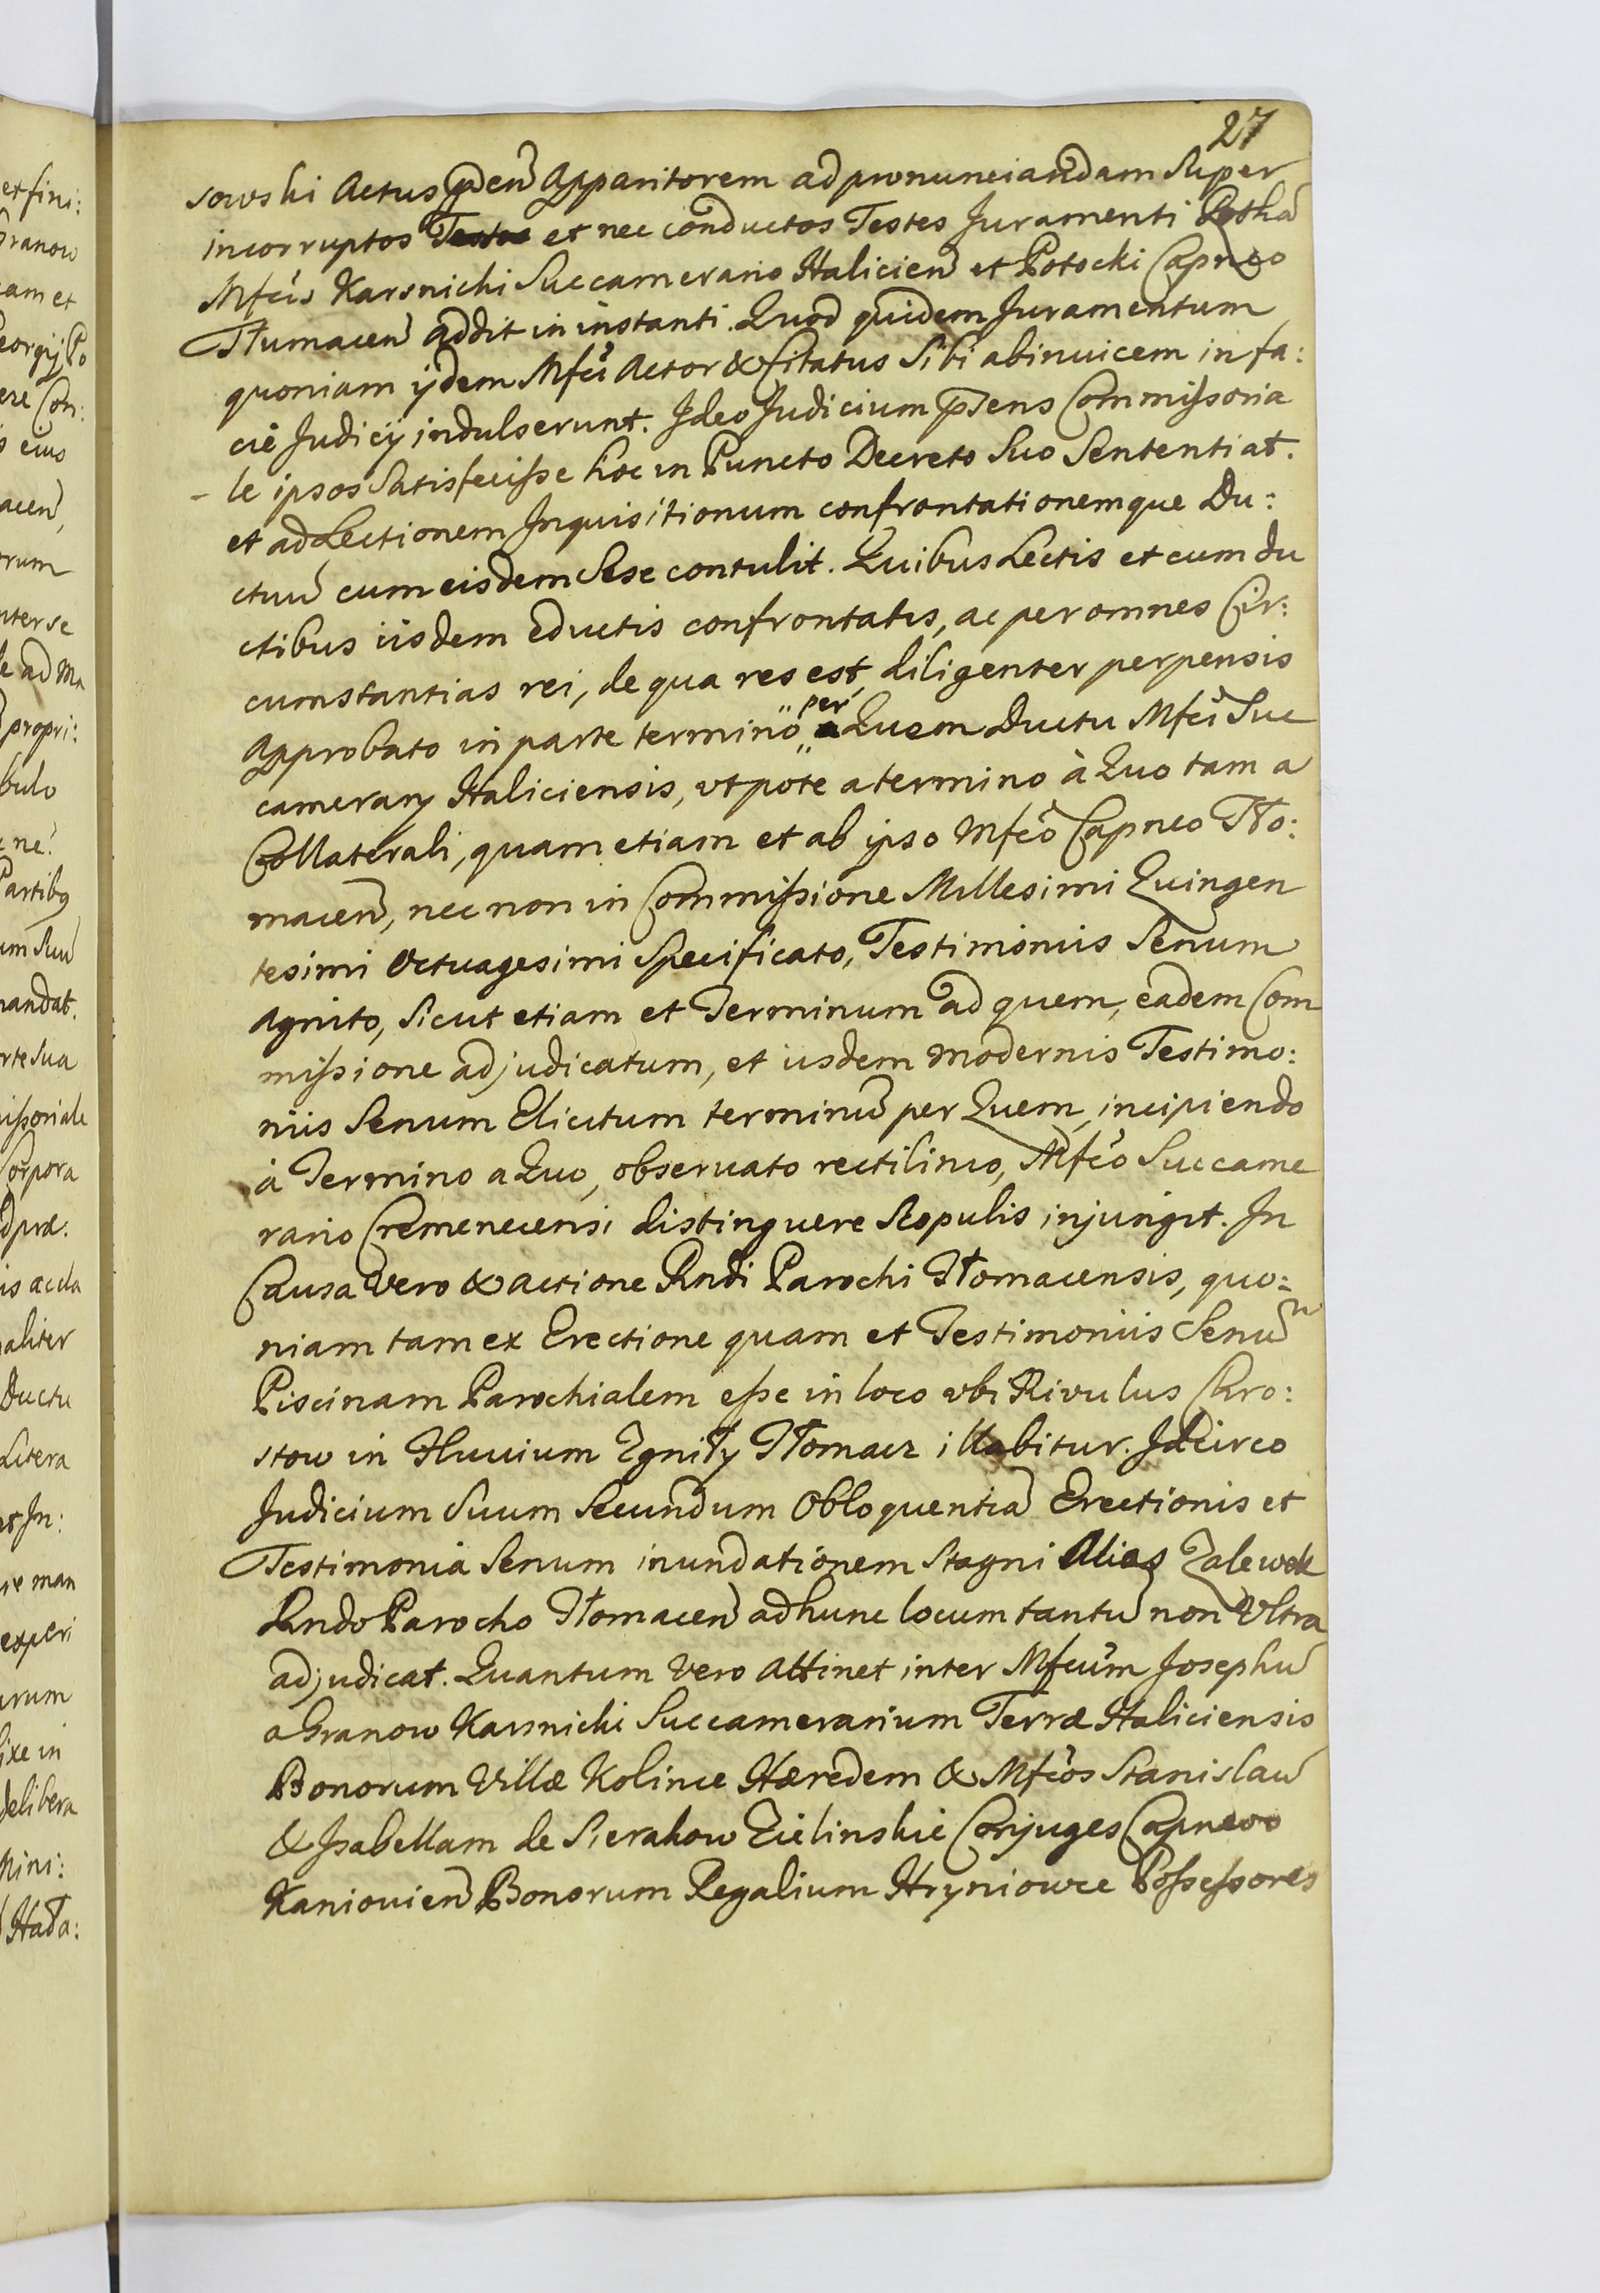 27
sowski Actus pñten Apparitorem ad pronunciandam Super
incorruptos et nec conductos Testes Juramenti Rotha
Mfcis Karsnicki Succamerario Halicien̄ et Potocki Capneo
Tłumacen̄ addit in instanti. Quod quidem Juramentum
quoniam ijdem Mfci Actor & Citatus Sibi abinuicem in fa:
cie Judicij indulserunt. Ideo Judicium pn̄ens Commissoria
le ipsos Satisfecisse hoc in Puncto Decreto Suo Sententiat.
et ad Lectionem Inquisitionum confrontationemque Du:
ctuū cum eisdem Sese contulit. Quibus Lectis et cum du
ctibus iisdem eductis confrontatis, ac per omnes Cir:
cumstantias rei, de qua res est, diligenter perpensis
Approbato in parte termino per Quem Ductu Mfci Suc
camerarij Haliciensis, utpote a termino à Quo tam a
Collaterali, quam etiam et ab ipso Mfcō Capneo Tło:
macen̄, nec non in Commissione Millesimi Quingen
tesimi Octuagesimi Specificato, Testimoniis Senum
Agnito, Sicut etiam et Terminum ad quem, eadem Com
missione adjudicatum, et iisdem modernis Testimo:
niis Senum Elicitum terminū per Quem, incipiendo
à Termino a Quo, observato rectilineo, Mfcō Succame
rario Cremenecensi distinguere Scopulis injungit. In
Causa Vero & actione Rndi Parochi Tłomacensis, quo:
niam tam ex Erectione quam et Testimoniis Senūm
Piscinam Parochialem esse in loco ubi Rivulus Chro:
stow in Fluvium Zgniły Tłomacz illabitur. Idcirco
Judicium Suum Secundum Obloquentiā Erectionis et
Testimonia Senum inundationem Stagni Alias Zalewek
Rndo Parocho Tłomacen̄ ad hunc locum tantū non Ultra
adjudicat. Quantum Vero attinet inter Mfcūm Josephū
a Granow Karsnicki Succamerarium Terræ Haliciensis
Bonorum Villæ Kolince Hæredem & Mfcos Stanislaū
& Isabellam de Sierakow Zielinskie Conjuges Capneos
Kaniovien̄ Bonorum Regalium Hryniowce Possessores